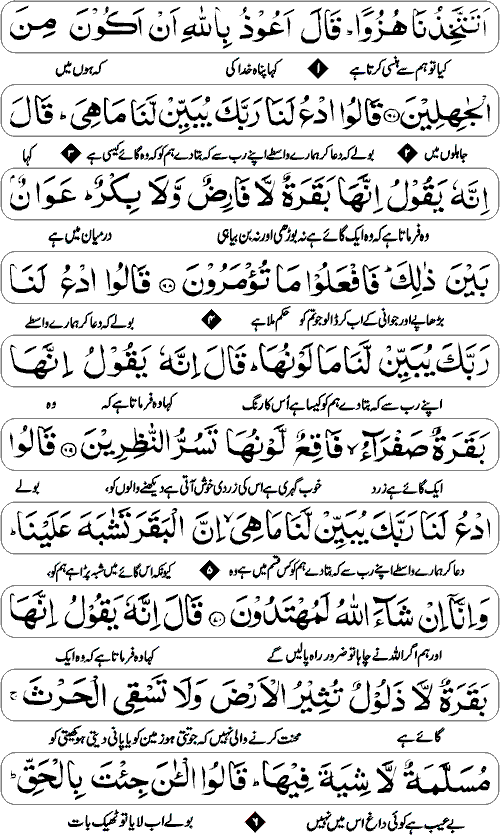 اَتَتَّخِذُنَا هُزُوًا ؕ قَالَ اَعُوْذُ بِاللّٰهِ اَنْ اَكُوْنَ مِنَ
کیا تو ہم سے ہنسی کرتا ہے ۱ کہا پناہ خدا کی کہ ہوں میں
الْجٰهِلِيْنَ ۶۷ قَالُوا ادْعُ لَنَا رَبَّكَ يُبَيِّنْ لَّنَا مَا هِيَ ؕ قَالَ
جاہلوں میں ۲ بولے کہ دعا کر ہمارے واسطے اپنے رب سے کہ بتا دے ہم کو کہ وہ گائے کیسی ہے ۳ کہا
اِنَّهٗ يَقُوْلُ اِنَّهَا بَقَرَةٌ لَّا فَارِضٌ وَّلَا بِكْرٌ ؕ عَوَانٌۢ
وہ فرماتا ہے کہ وہ ایک گائے ہے نہ بوڑھی اور نہ بن بیاہی درمیان میں ہے
بَيْنَ ذٰلِكَ ؕ فَافْعَلُوْا مَا تُؤْمَرُوْنَ ۶۸ قَالُوا ادْعُ لَنَا
بڑھاپے اور جوانی کے اب کر ڈالو جو تم کو حکم ملا ہے ۴ بولے کہ دعا کر ہمارے واسطے
رَبَّكَ يُبَيِّنْ لَّنَا مَا لَوْنُهَا ؕ قَالَ اِنَّهٗ يَقُوْلُ اِنَّهَا
اپنے رب سے کہ بتا دے ہم کو کیسا ہے اُس کا رنگ کہا وہ فرماتا ہے کہ وہ
بَقَرَةٌ صَفْرَآءُ ۙ فَاقِعٌ لَّوْنُهَا تَسُرُّ النّٰظِرِيْنَ ۶۹ قَالُوا
ایک گائے ہے زرد خوب گہری ہے اس کی زردی خوش آتی ہے دیکھنے والوں کو، بولے
ادْعُ لَنَا رَبَّكَ يُبَيِّنْ لَّنَا مَا هِيَ ۙ اِنَّ الْبَقَرَ تَشٰبَهَ عَلَيْنَا ؕ
دعا کر ہمارے واسطے اپنے رب سے کہ بتا دے ہم کو کس قسم میں ہے وہ ۵ کیونکہ اس گائے میں شبہ پڑا ہے ہم کو،
وَاِنَّآ اِنْ شَآءَ اللّٰهُ لَمُهْتَدُوْنَ ۷۰ قَالَ اِنَّهٗ يَقُوْلُ اِنَّهَا
اور ہم اگر اللہ نے چاہا تو ضرور راہ پالیں گے کہا وہ فرماتا ہے کہ وہ ایک
بَقَرَةٌ لَّا ذَلُوْلٌ تُثِيْرُ الْاَرْضَ وَلَا تَسْقِي الْحَرْثَ ۚ
گائے ہے محنت کرنے والی نہیں کہ جوتتی ہو زمین کو یا پانی دیتی ہو کھیتی کو
مُسَلَّمَةٌ لَّا شِيَةَ فِيْهَا ؕ قَالُوا الْـٰٔنَ جِئْتَ بِالْحَقِّ ؕ
بے عیب ہے کوئی داغ اس میں نہیں ۶ بولے اب لایا تو ٹھیک بات